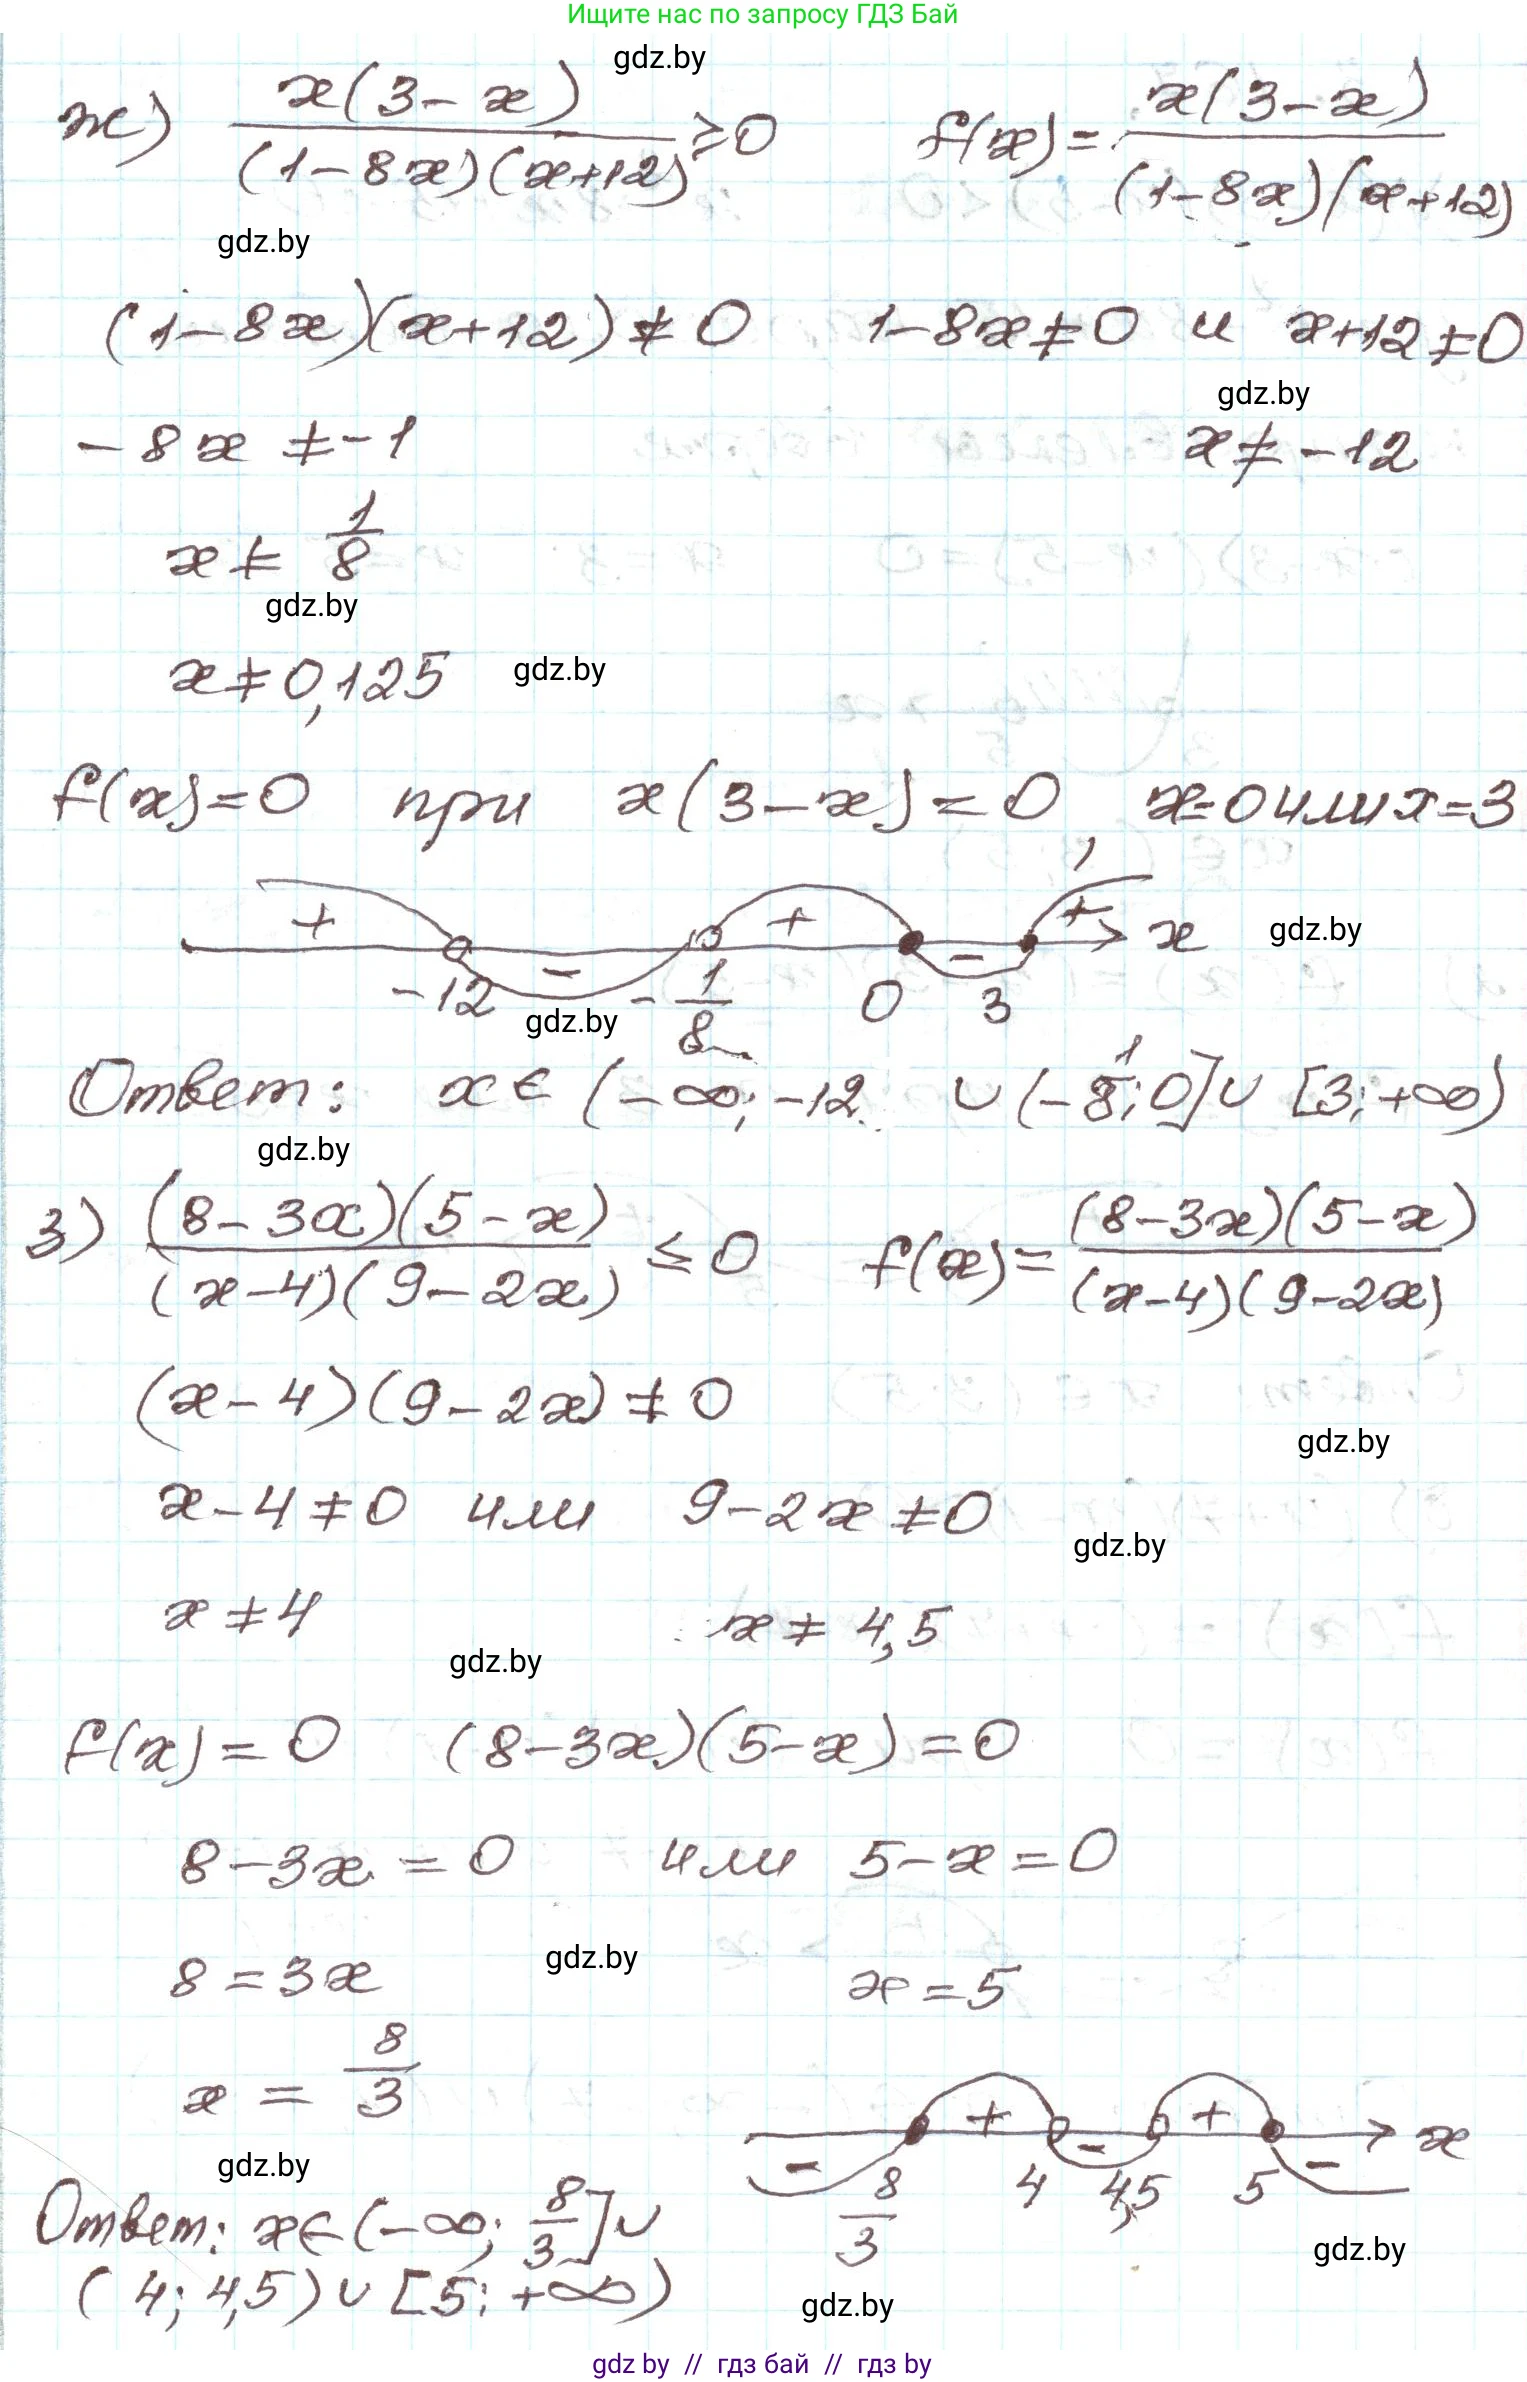 Ищите нас по запросу ГДЗ Бай
gdz.by
ж) x(3-x)/((1-8x)(x+12)) ≥0 f(x)= x(3-x)/((1-8x)(x+12))
gdz.by
(1-8x)(x+12)≠0 1-8x≠0 и x+12≠0
gdz.by
-8x ≠-1 x≠-12
x≠ 1/8
gdz.by
x≠0,125 gdz.by
f(x)=0 при x(3-x)=0, x=0 или x=3
+ - + - + x gdz.by
-12 -1/8 0 3
gdz.by
Ответ: x∈(-∞;-12 ∪(-1/8;0]∪ [3;+∞)
gdz.by
з) (8-3x)(5-x)/((x-4)(9-2x)) ≤0 f(x)= (8-3x)(5-x)/((x-4)(9-2x))
(x-4)(9-2x)≠0
gdz.by
x-4≠0 или 9-2x≠0
gdz.by
x≠4 x≠4,5
gdz.by
f(x)=0 (8-3x)(5-x)=0
8-3x=0 или 5-x=0
gdz.by
8=3x x=5
x= 8/3
- + - + - x
gdz.by
8/3 4 4,5 5
Ответ: x∈(-∞; 8/3]∪
gdz.by
(4; 4,5)∪[5;+∞)
gdz.by
gdz by // гдз бай // гдз by